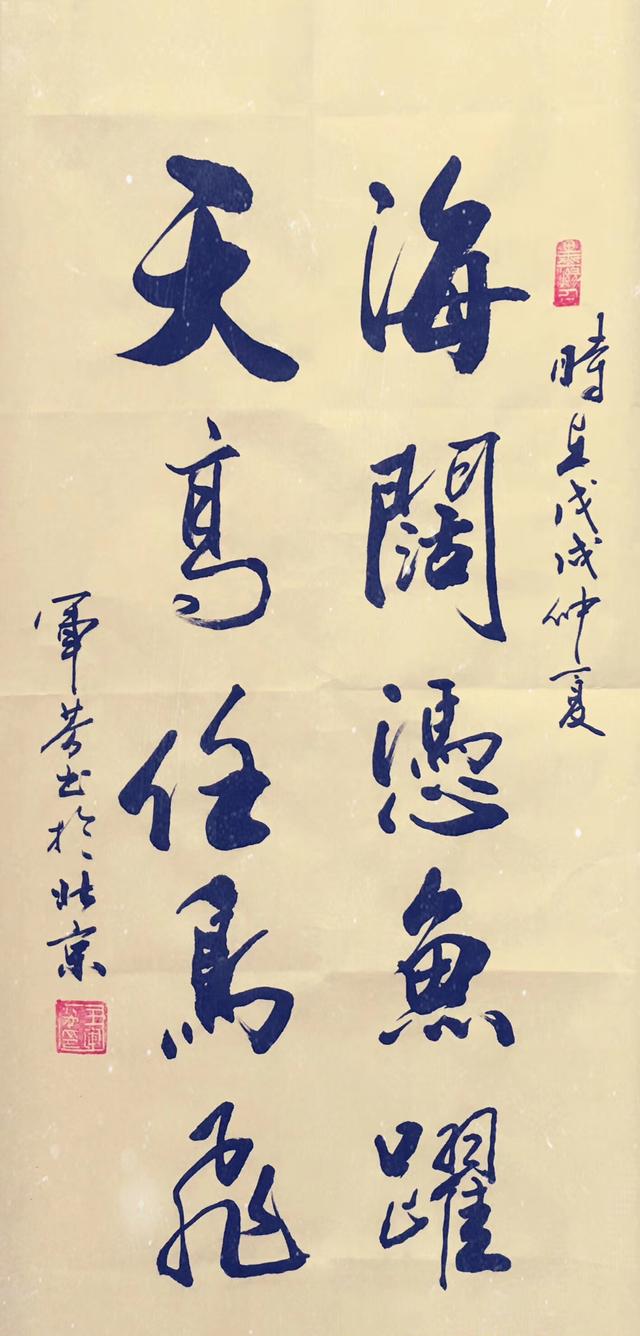 時在戊戌仲夏
海闊憑魚躍
天高任鳥飛
軍芳書於北京